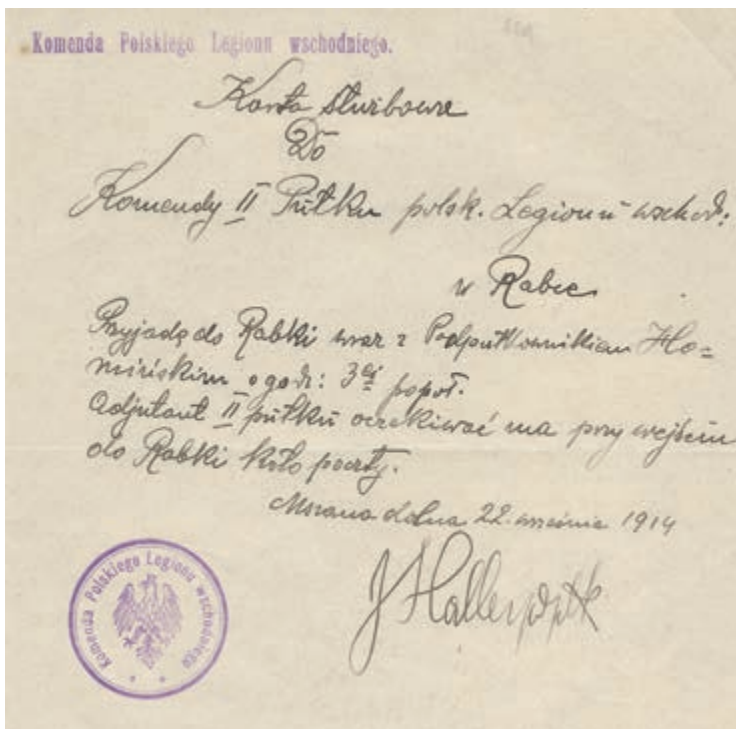 Komenda Polskiego Legionu wschodniego.
Karta służbowa
Do
Komendy II Pułku polsk. Legionu wschod:
w Rabce
Przyjadę do Rabki wraz z Podpułkownikiem Ho=
mińskim o godz: 3ej popoł.
Adjutant II pułku oczekiwać ma przy wejściu
do Rabki koło poczty.
Mszana dolna 22. września 1914
J Haller ppłk
Komenda Polskiego Legionu wschodniego